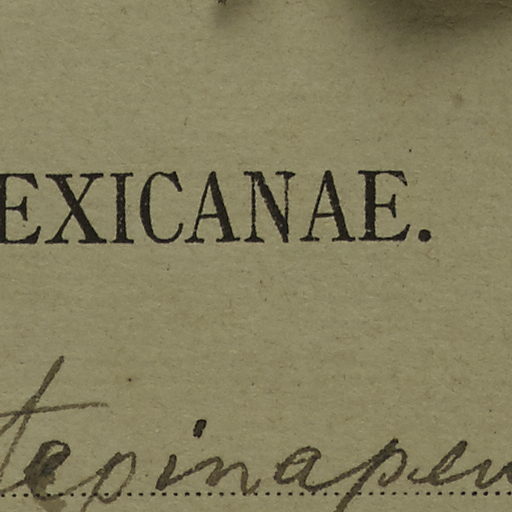 EXICANAE.
tepinapen